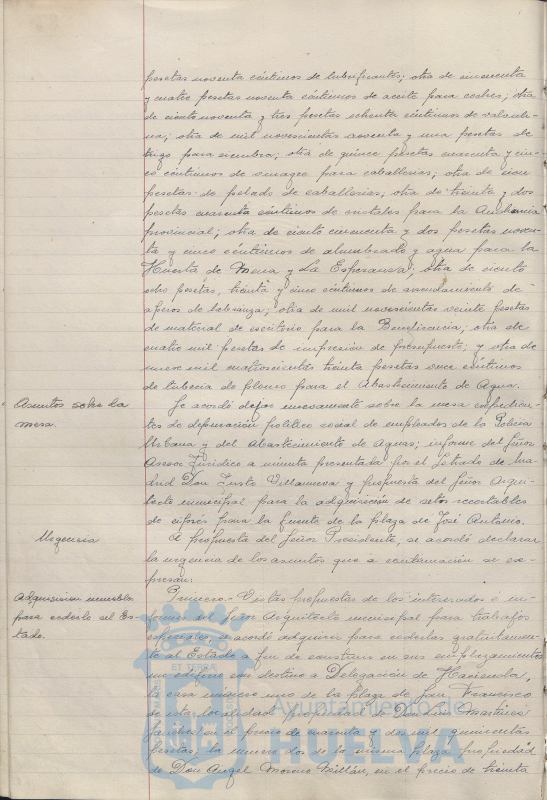 pesetas noventa céntimos de lubrificantes; otra de cincuenta
y cuatro pesetas noventa céntimos de aceite para coches; otra
de ciento noventa y tres pesetas ochenta céntimos de
na; otra de mil novecientas noventa y una pesetas de
trigo para siembra; otra de quince pesetas cuarenta y cin-
co céntimos de vinagre para caballerías; otra de cien
pesetas de pelado de caballerías; otra de treinta y dos
pesetas cuarenta céntimos de cristales para la Audiencia
provincial; otra de ciento cincuenta y dos pesetas noven-
ta y cinco céntimos de alumbrado y agua para la
Huerta de Mena y La Esperanza; otra de ciento
ocho pesetas, treinta y cinco céntimos de arrendamiento de
aperos de labranza; otra de mil novecientas veinte pesetas
de material de escritorio para la Beneficencia; otra de
cuatro mil pesetas de impresión de presupuesto; y otra de
nueve mil cuatrocientas treinta pesetas once céntimos
de tubería de plomo para el Abastecimiento de Agua.
Asuntos sobre la
mesa.
Se acordó dejar nuevamente sobre la mesa expedien-
tes de depuración político social de empleados de la Policía
Urbana y del Abastecimiento de Aguas; informe del Señor
Asesor Jurídico a minuta presentada por el Letrado de Ma-
drid Don Justo Villanueva y propuesta del Señor Arqui-
tecto municipal para la adquisición de setos recortables
de cipres para la fuente de la plaza de José Antonio.
Urgencia
A propuesta del Señor Presidente, se acordó declarar
la urgencia de los asuntos que a continuación se ex-
presan:
Adquisición inmuebles
para cederlo al Es-
tado.
Primero.- Vistas propuestas de los interesados é in-
formes del Señor Arquitecto municipal para trabajos
especiales, se acordó adquirir para cederlas gratuitamen-
te al Estado a fin de construir en sus emplazamientos
un edificio con destino a Delegación de Hacienda,
la casa número uno de la plaza de San Francisco
de esta localidad propiedad de Don Luis Martínez
en el precio de cuarenta y dos mil quinientas
pesetas, la número dos de la misma plaza propiedad
de Don Angel Moreno Millán, en el precio de treinta
Ayuntamiento de
HUELVA